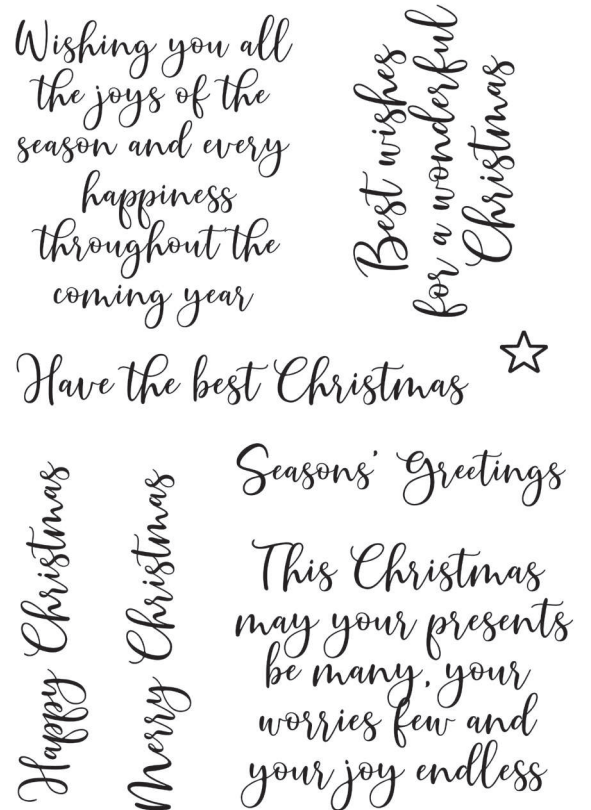 Wishing you all
the joys of the
season and every
happiness
throughout the
coming year
Best wishes
for a wonderful
Christmas
Have the best Christmas
Seasons' Greetings
Happy Christmas
Merry Christmas
This Christmas
may your presents
be many, your
worries few and
your joy endless